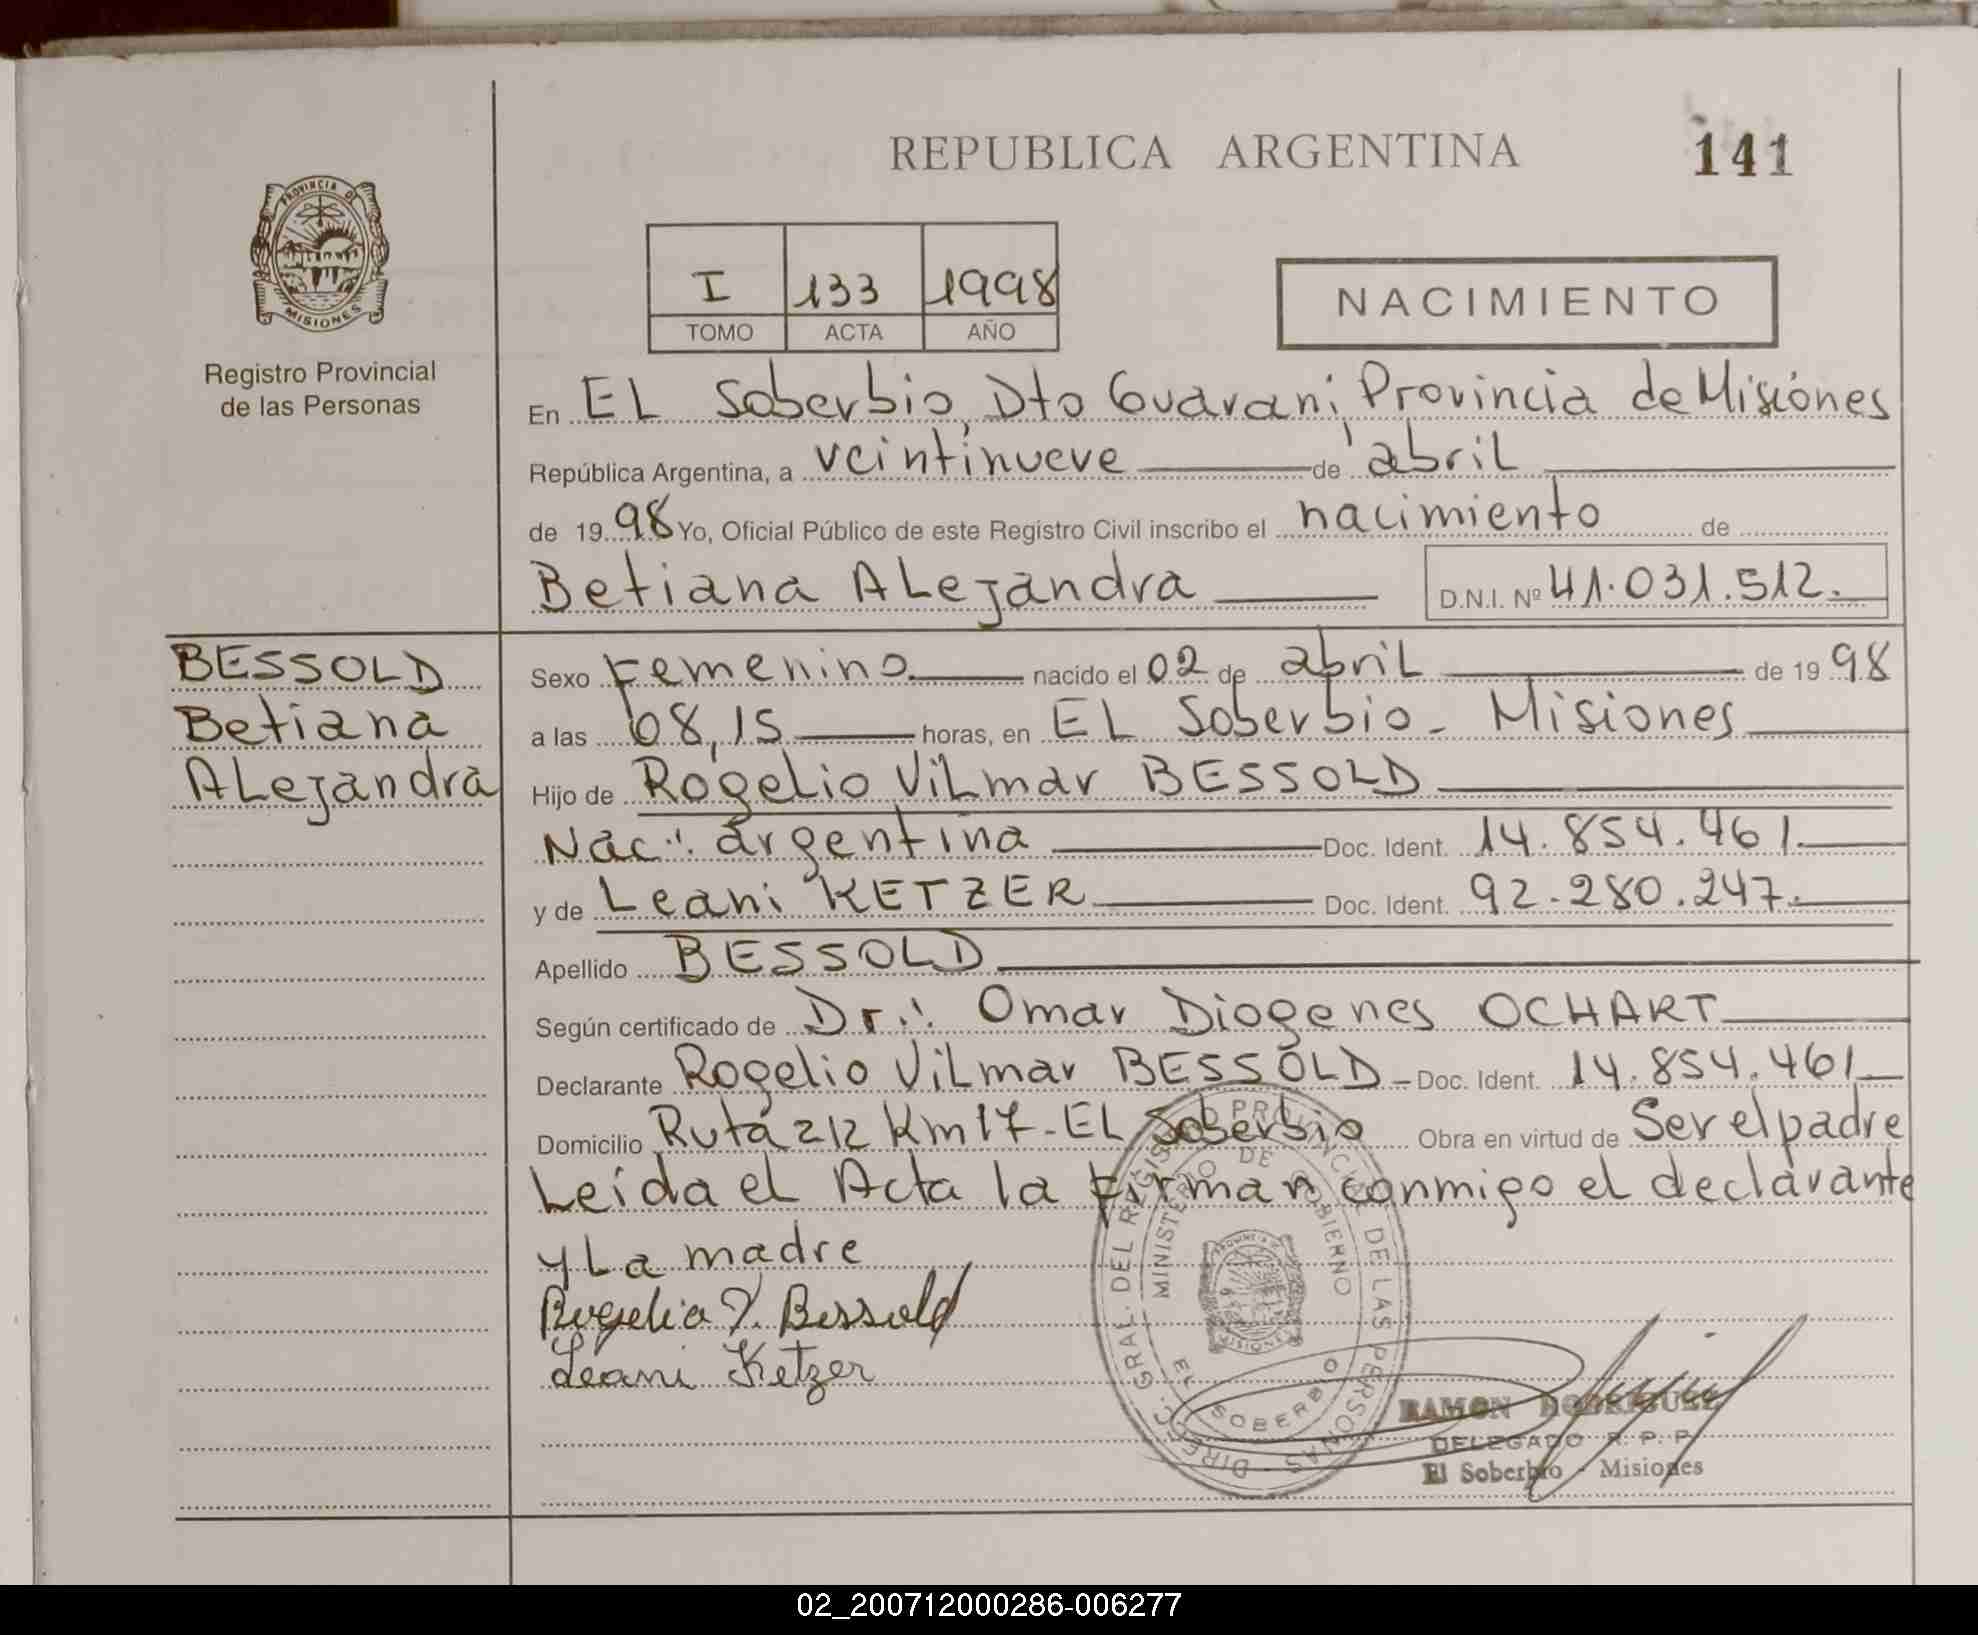 REPUBLICA ARGENTINA
141
PROVINCIA DE
MISIONES
Registro Provincial
de las Personas
I 133 1998
TOMO ACTA AÑO
NACIMIENTO
En EL Soberbio, Dto Guarani, Provincia de Misiones
República Argentina, a veintinueve de abril
de 1998 Yo, Oficial Público de este Registro Civil inscribo el nacimiento de
Betiana ALejandra D.N.I. Nº 41.031.512.
BESSOLD
Betiana
ALejandra
Sexo Femenino nacido el 02 de abril de 1998
a las 08,15 horas, en EL Soberbio - Misiones
Hijo de Rogelio ViLmar BESSOLD
Nac: argentina Doc. Ident. 14.854.461.
y de Leani KETZER Doc. Ident. 92.280.247.
Apellido BESSOLD
Según certificado de Dr: Omar Diogenes OCHART
Declarante Rogelio ViLmar BESSOLD - Doc. Ident. 14.854.461
Domicilio Ruta 212 Km 17 - EL Soberbio Obra en virtud de Ser el padre
Leida el Acta la Firman conmigo el declarante
y La madre
Rogelio V. Bessold
Leani Ketzer
DIREC. GRAL. DEL REGISTRO PROVINCIAL DE LAS PERSONAS
MINISTERIO DE GOBIERNO
EL SOBERBIO
PROVINCIA DE
MISIONES
RAMON RODRIGUEZ
DELEGADO R. P. P.
El Soberbio - Misiones
02_200712000286-006277